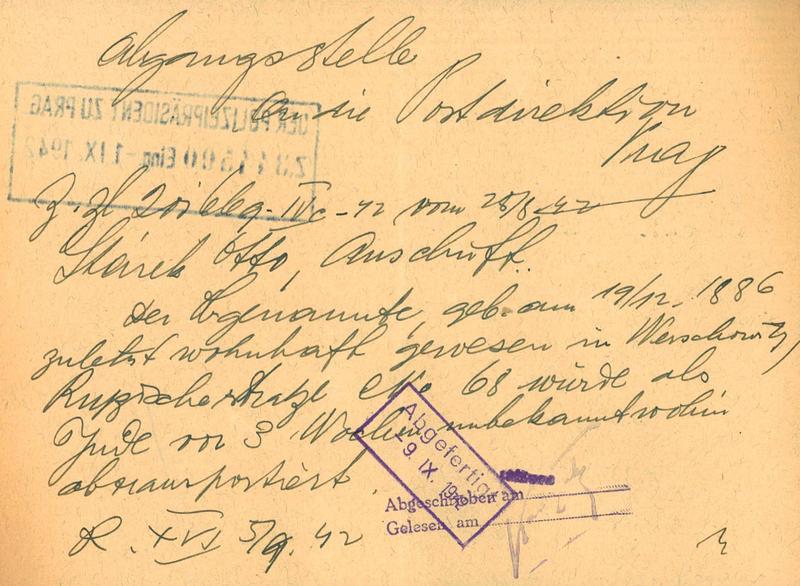 Abgangsstelle
An die Postdirektion
Prag
DER POLIZEIPRÄSIDENT ZU PRAG
Eing. -1. IX. 1942
IVc-42 vom 25/8 42
Stárek Otto, Anschrift.
Der Obgenannte, geb. am 19/12. 1886
zuletzt wohnhaft gewesen in Werschowitz,
No 68 wurde als
Jude vor 3 Wochen unbekannt wohin
abtransportiert.
Abgefertigt
-9. IX. 1942
Abgeschrieben am
Gelesen am
R. XVI 5/9. 42